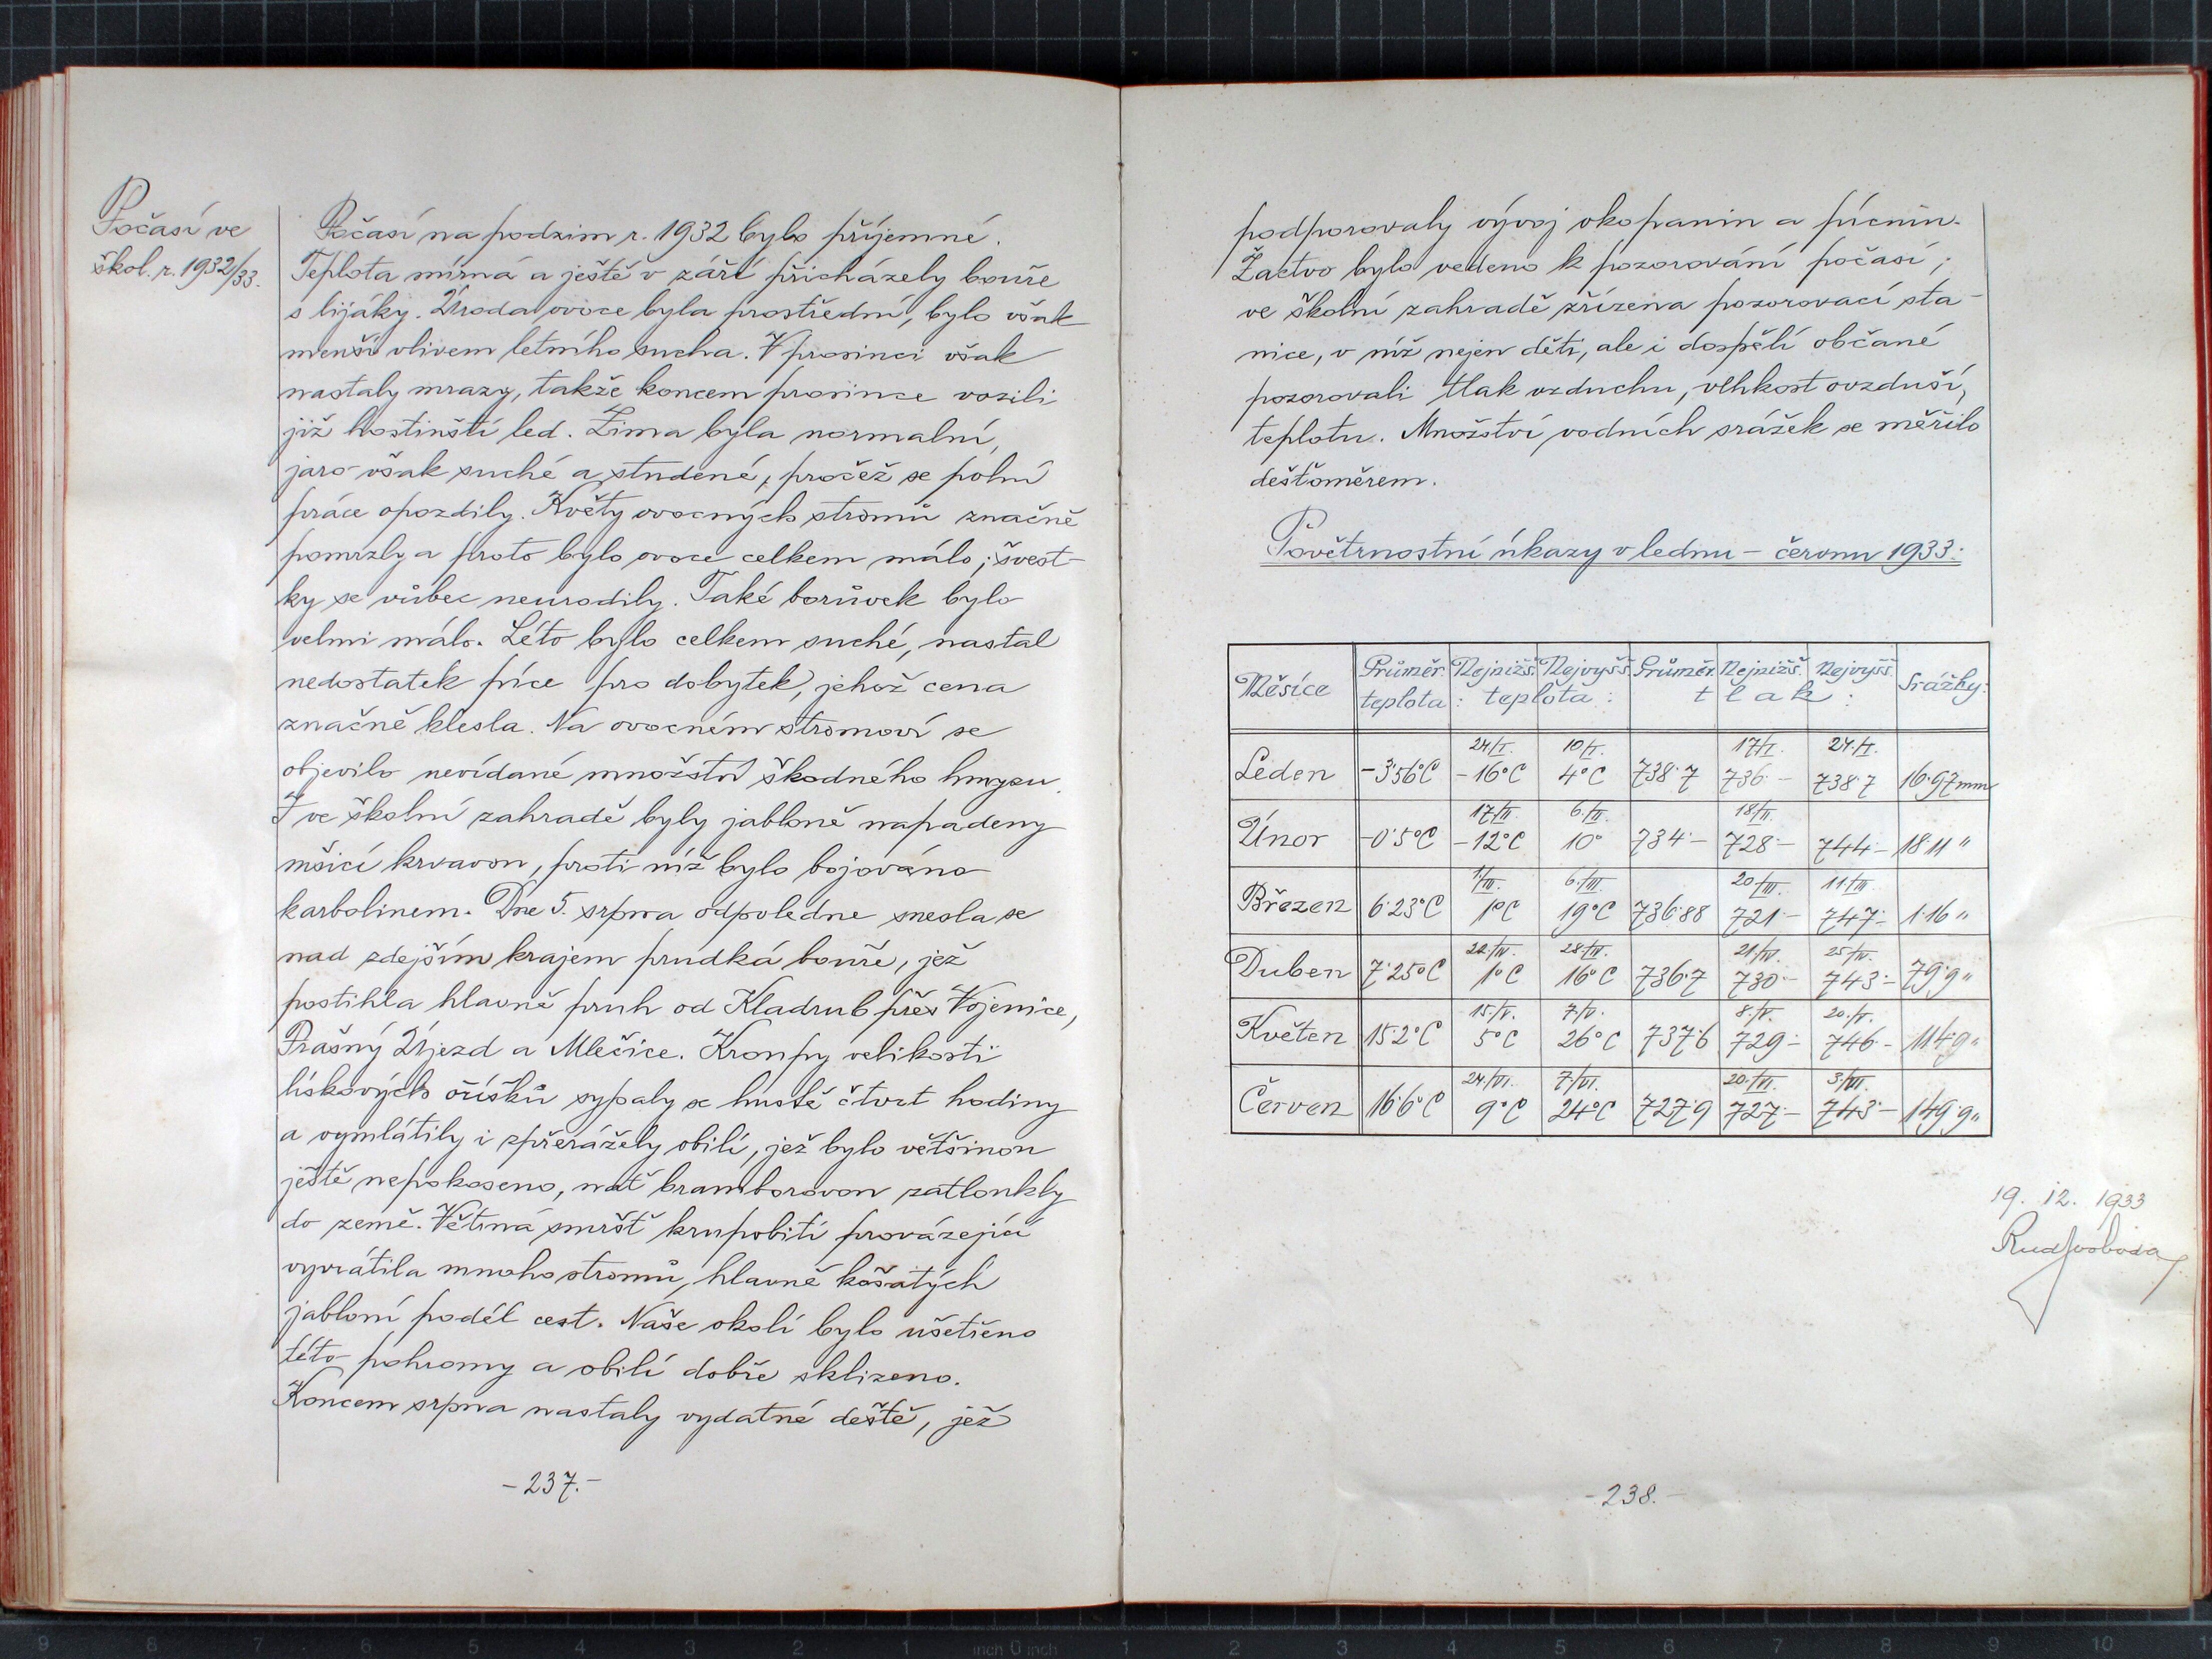 Počasí ve
škol. r. 1932/33.
Počasí na podzim r. 1932 bylo příjemné.
Teplota mírná a ještě v září přicházely bouře
s lijáky. Úroda ovoce byla prostřední, bylo však
menší vlivem letního sucha. V prosinci však
nastaly mrazy, takže koncem prosince vozili
již hostinští led. Zima byla normalní,
jaro však suché a studené, pročež se polní
práce opozdily. Květy ovocných stromů značně
pomrzly a proto bylo ovoce celkem málo; švest-
ky se vůbec neurodily. Také borůvek bylo
velmi málo. Léto bylo celkem suché, nastal
nedostatek píce pro dobytek, jehož cena
značně klesla. Na ovocném stromoví se
objevilo nevídané množství škodného hmyzu.
I ve školní zahradě byly jabloně napadeny
mšicí krvavou, proti níž bylo bojováno
karbolinem. Dne 5. srpna odpoledne snesla se
nad zdejším krajem prudká bouře, jež
postihla hlavně pruh od Kladrub přes Vojenice,
Prašný Újezd a Mlečice. Kroupy velikosti
lískových oříšků sypaly se hustě čtvrt hodiny
a vymlátily i zpřerážely obilí, jež bylo většinou
ještě nepokoseno, nať bramborovou zatloukly
do země. Větrná smršť krupobití provázející
vyvrátila mnoho stromů, hlavně košatých
jabloní podél cest. Naše okolí bylo ušetřeno
této pohromy a obilí dobře sklizeno.
Koncem srpna nastaly vydatné deště, jež
-237.-
podporovaly vývoj okopanin a pícnin.
Žactvo bylo vedeno k pozorování počasí;
ve školní zahradě zřízena pozorovací sta-
nice, v níž nejen děti, ale i dospělí občané
pozorovali tlak vzduchu, vlhkost ovzduší,
teplotu. Množství vodních srážek se měřilo
dešťoměrem.
Povětrnostní úkazy v lednu - červnu 1933:
Měsíce Průměr. Nejnižš. Nejvyšš. Průměr. Nejnižš. Nejvyšš. Srážky:
teplota: teplota: tlak:
24/I. 10/I. 17/I. 24./I.
Leden -3·56°C -16°C 4°C 738·7 736·- 738·7 16·97mm
17/II. 6./II. 18/II.
Únor -0·5°C -12°C 10° 734·- 728·- 744- 18·11 "
1./III. 6./III. 20./III. 11./III.
Březen 6·23°C 1°C 19°C 736·88 721·- 747·- 1·16 "
22./IV. 28./IV. 21/IV. 25/IV.
Duben 7·25°C 1°C 16°C 736·7 730·- 743·- 79·9 "
15./V. 7./V. 8./V. 20./V.
Květen 15·2°C 5°C 26°C 737·6 729·- 746·- 114·9 "
24./VI. 7./VI. 20./VI. 3./VI.
Červen 16·6°C 9°C 24°C 727·9 727·- 743·- 149·9 "
19. 12. 1933
Rud Svoboda
-238.-